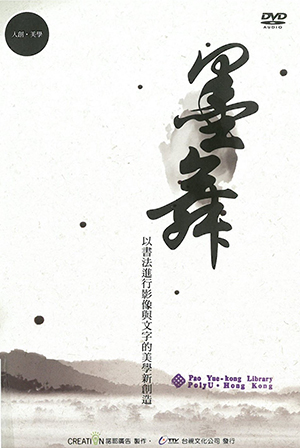 人創・美學
DVD
AUDIO
墨舞
以書法進行影像與文字的美學新創造
Pao Yue-kong Library
PolyU · Hong Kong
CREATION 諾那廣告 製作・ TTV 台視文化公司 發行